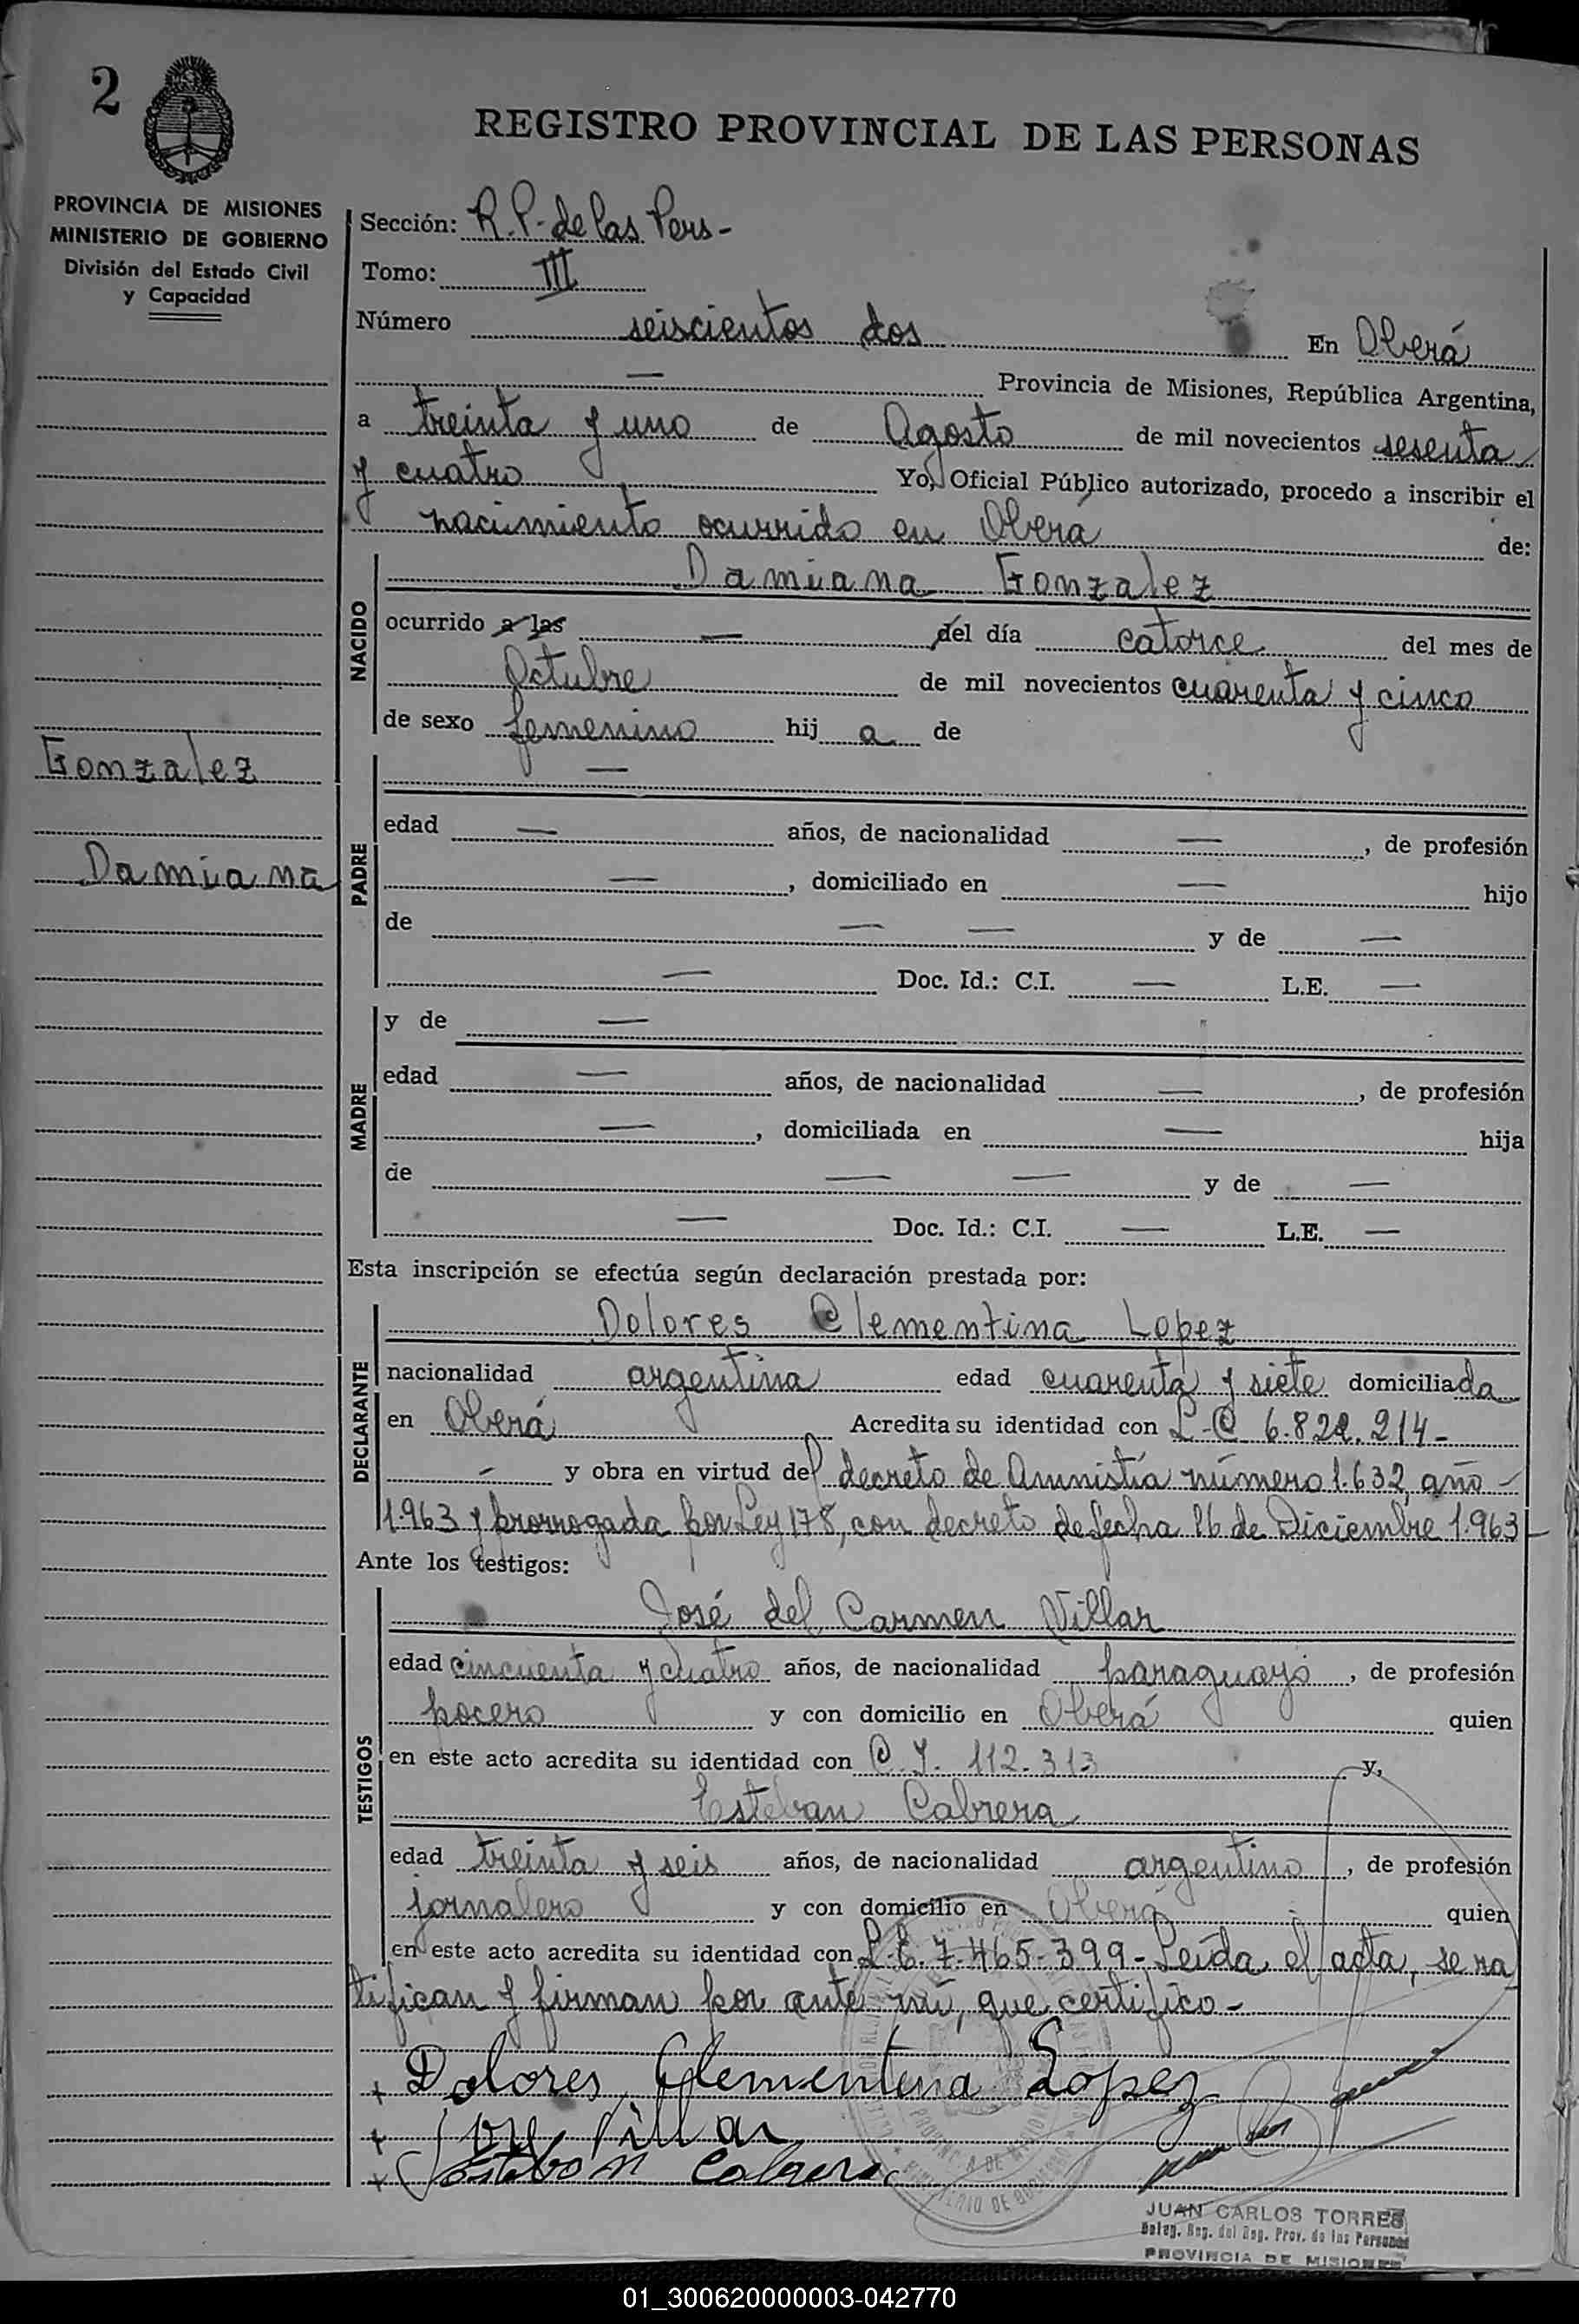 2
REGISTRO PROVINCIAL DE LAS PERSONAS
PROVINCIA DE MISIONES
MINISTERIO DE GOBIERNO
División del Estado Civil
y Capacidad
Gonzalez
Damiana
Sección: R. P. de las Pers -
Tomo: III
Número seiscientos dos En Oberá
— Provincia de Misiones, República Argentina,
a treinta y uno de Agosto de mil novecientos sesenta
y cuatro Yo, Oficial Público autorizado, procedo a inscribir el
nacimiento ocurrido en Oberá de:
NACIDO
Damiana Gonzalez
ocurrido a las — del día catorce del mes de
Octubre de mil novecientos cuarenta y cinco
de sexo femenino hij a de
PADRE
—
edad — años, de nacionalidad — , de profesión
— , domiciliado en — hijo
de — — y de —
— Doc. Id.: C.I. — L.E. —
MADRE
y de —
edad — años, de nacionalidad — , de profesión
— , domiciliada en — hija
de — — y de —
— Doc. Id.: C.I. — L.E. —
Esta inscripción se efectúa según declaración prestada por:
DECLARANTE
Dolores Clementina Lopez
nacionalidad argentina edad cuarenta y siete domiciliada
en Oberá Acredita su identidad con L-C 6.822.214-
- y obra en virtud del decreto de Amnistía número 1.632, año -
1.963 y prorrogada por Ley 178, con decreto de fecha 26 de Diciembre 1.963-
Ante los testigos:
TESTIGOS
José del Carmen Villar
edad cincuenta y cuatro años, de nacionalidad paraguayo , de profesión
pocero y con domicilio en Oberá quien
en este acto acredita su identidad con C. I. 112.313 y,
Esteban Cabrera
edad treinta y seis años, de nacionalidad argentino , de profesión
jornalero y con domicilio en Oberá quien
en este acto acredita su identidad con L.E. 7.465.399- Leída el acta, se ra
tifican y firman por ante mí, que certifico -
+ Dolores Clementina Lopez
+ Jose Villar
+ Esteban Cabrera
JUAN CARLOS TORRES
Deleg. Reg. del Reg. Prov. de las Personas
PROVINCIA DE MISIONES
01_300620000003-042770